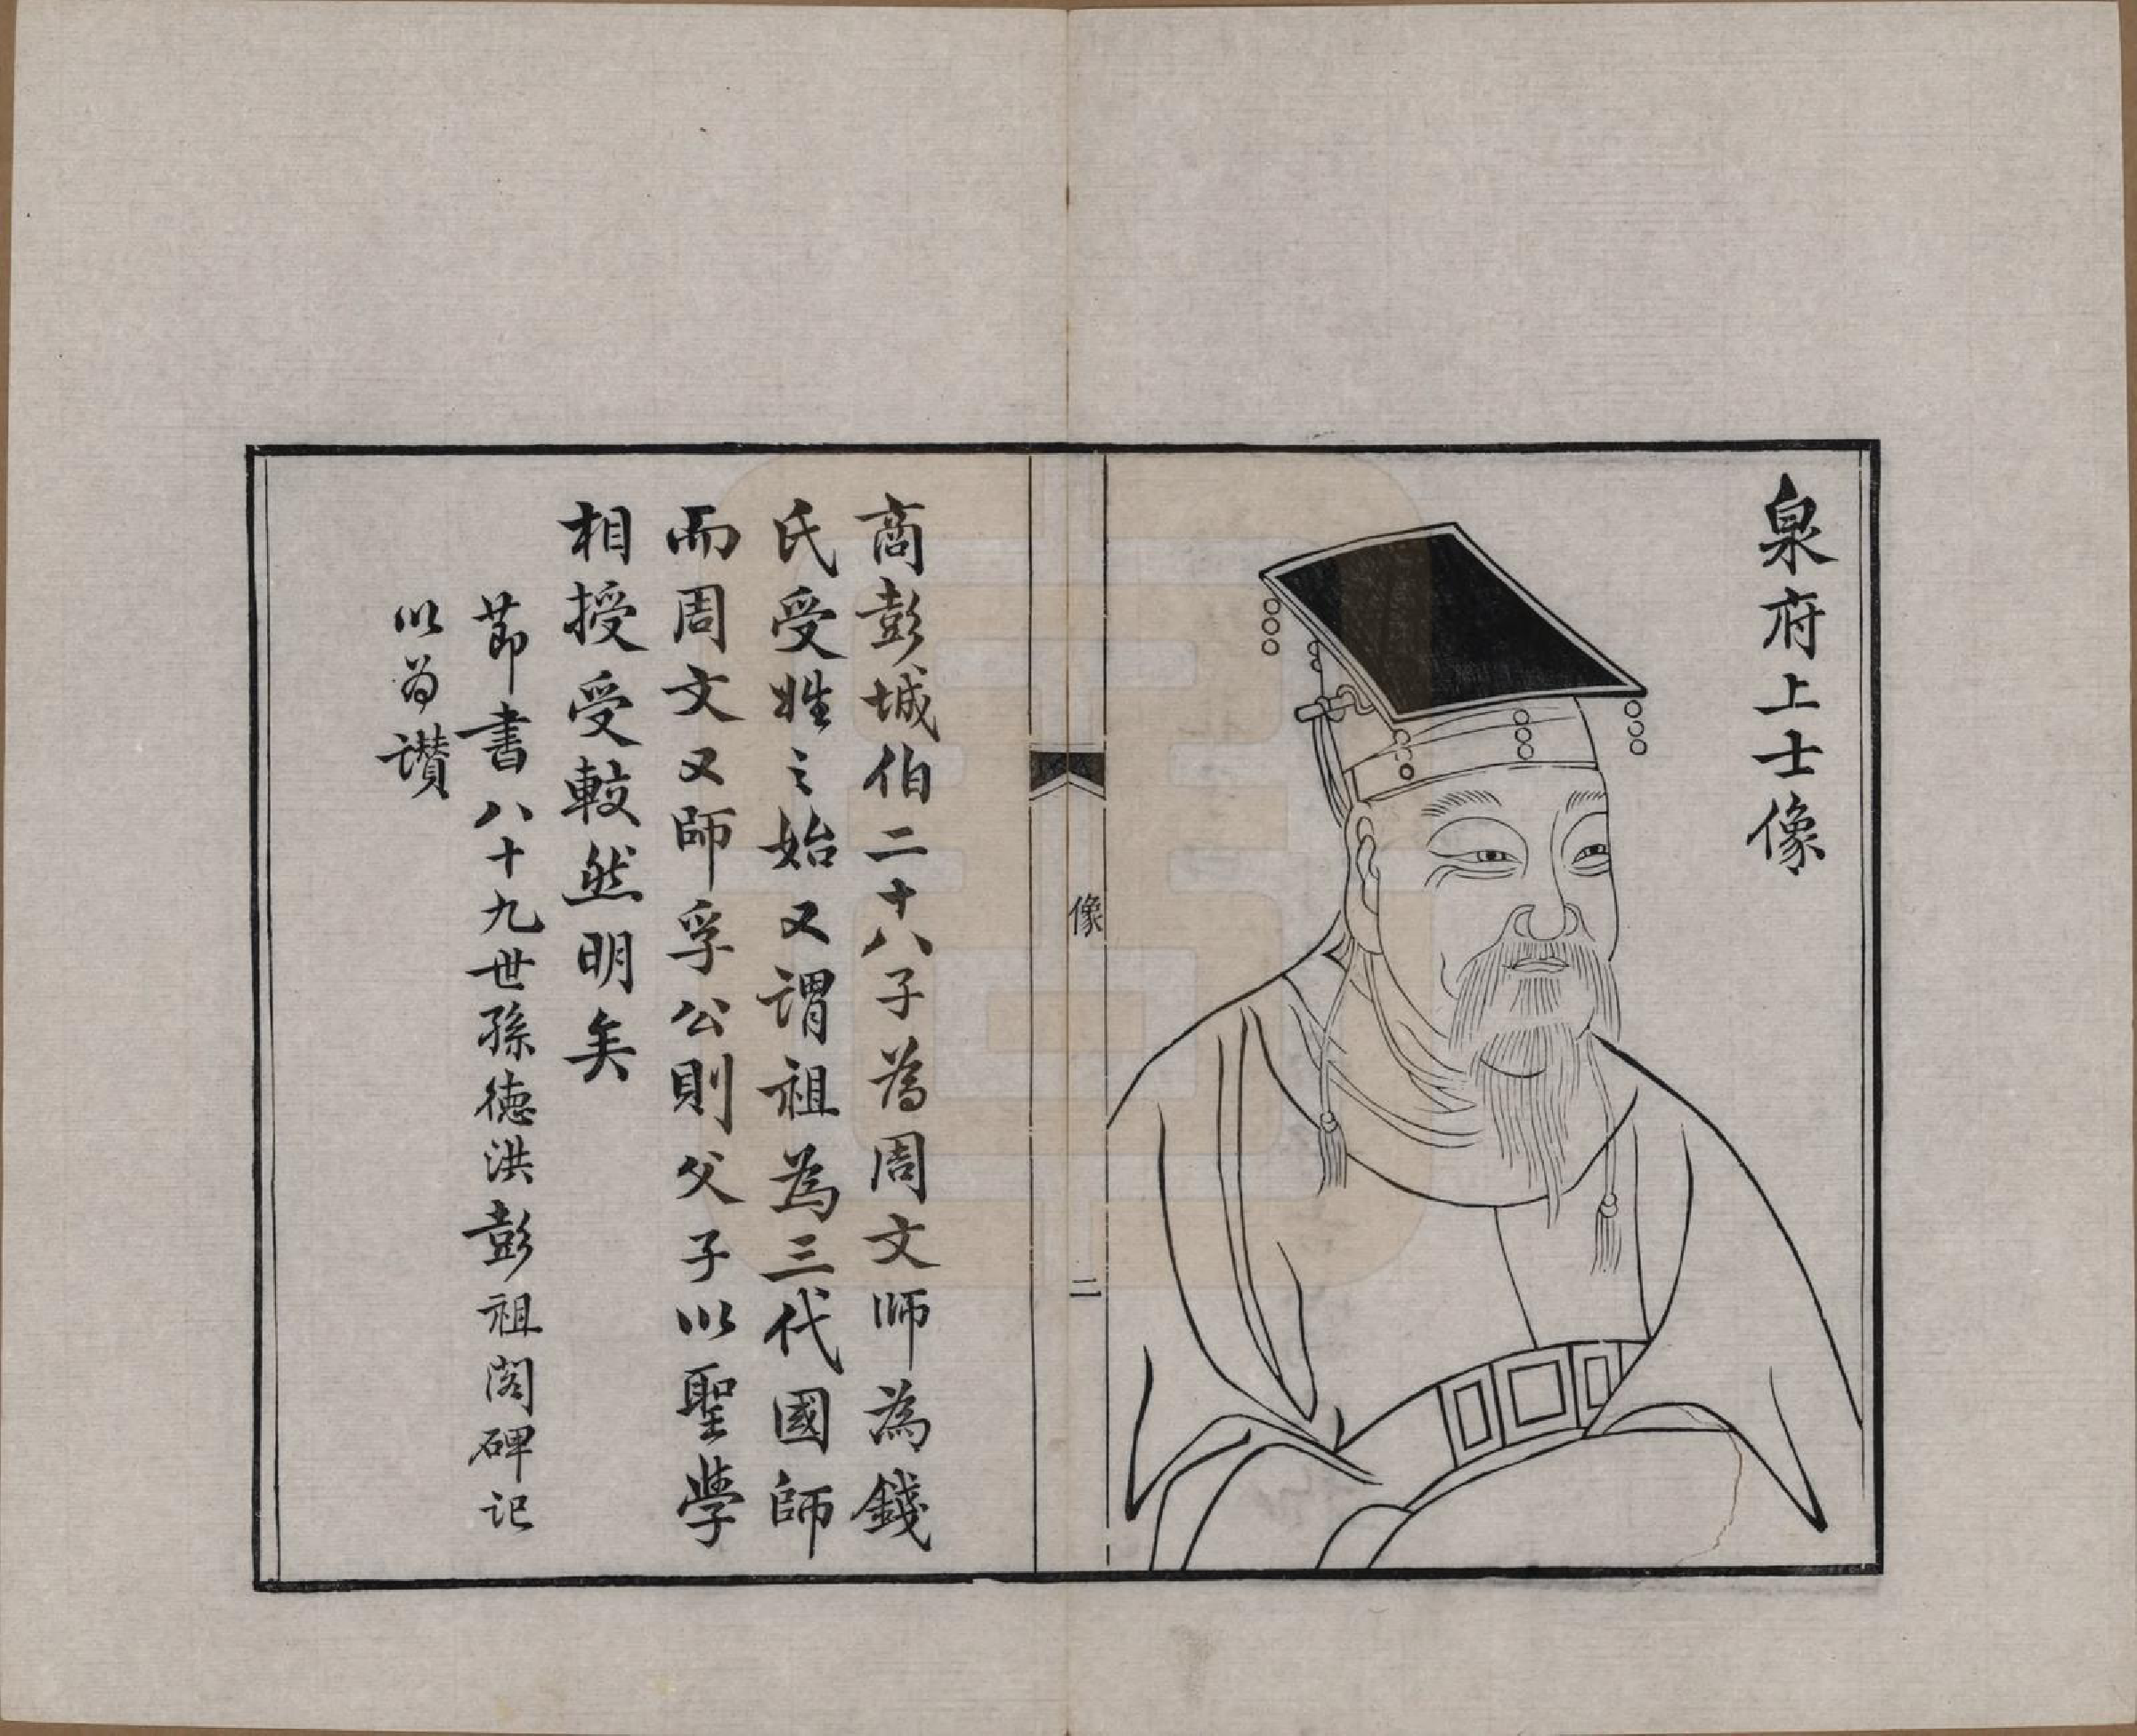 泉府上士像
像
二
商彭城伯二十八子為周文師為錢
氏受姓之始又謂祖為三代國師
而周文又師孚公則父子以聖學
相授受較然明矣
節書八十九世孫德洪彭祖閣碑记
以為讃